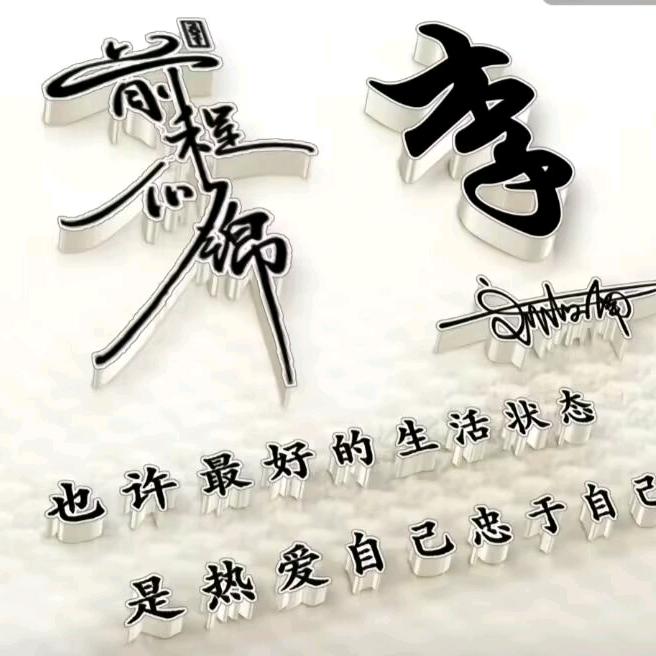 前程似锦
李
也许最好的生活状态
是热爱自己忠于自己